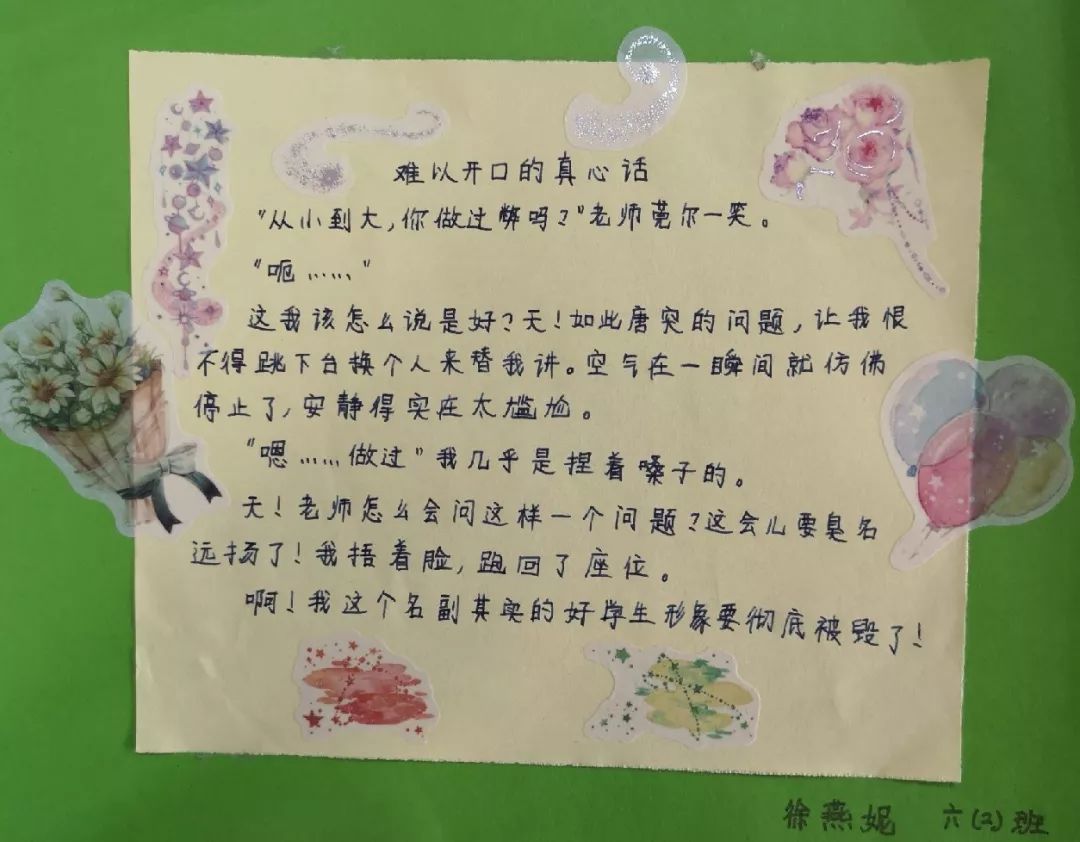 难以开口的真心话
"从小到大,你做过弊吗?"老师莞尔一笑。
"呃……"
这我该怎么说是好?天!如此唐突的问题,让我恨
不得跳下台换个人来替我讲。空气在一瞬间就仿佛
停止了,安静得实在太尴尬。
"嗯……做过"我几乎是捏着嗓子的。
天!老师怎么会问这样一个问题?这会儿要臭名
远扬了!我捂着脸,跑回了座位。
啊!我这个名副其实的好学生形象要彻底被毁了!
徐燕妮 六(2)班